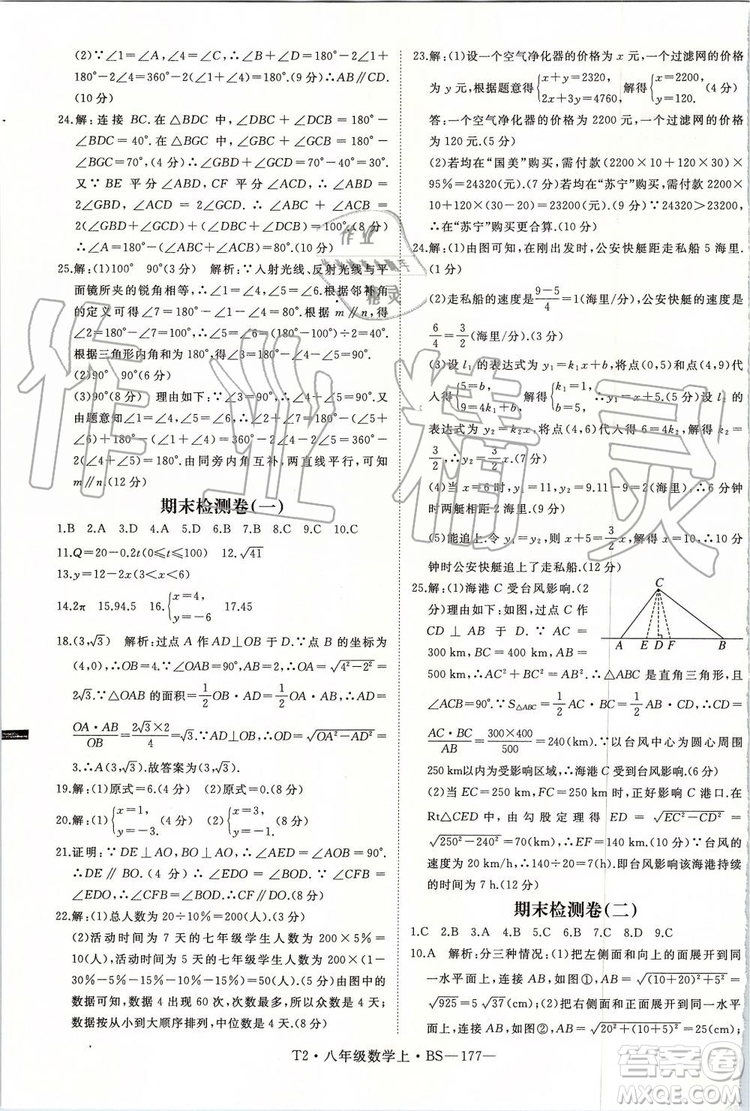 (2)∵∠1=∠A,∴∠ABD=180°-∠1-∠A=
180°-2∠1.∵∠2=∠C,∴∠CDB=180°-∠2-∠C=
180°-2∠2.∴∠ABD+∠CDB=180°-2∠1+
180°-2∠4=360°-2(∠1+∠4)=180°.∴AB∥CD.
(10分)
24.解:连接BC.在△BDC中,∠DBC+∠DCB=180°-
∠BDC=40°.在△BGC中,∠GBC+∠GCB=180°-
∠BGC=70°,(4分)∴∠GBD+∠GCD=70°-40°=
30°.(6分)又∵BE平分∠ABD,CF平分∠ACD,∴∠ABD=
2∠GBD,∠ACD=2∠GCD,∴∠ABC+∠ACB=
2∠GBD+2∠GCD+(∠DBC+∠DCB)=100°.(8分)
∴∠A=180°-(∠ABC+∠ACB)=80°.(10分)
25.解:(1)100° 90°(3分) 解析:∵入射光线、反射光线与平
面镜所夹的锐角相等,∴∠1=∠4=50°.根据邻补角
的定义可得∠7=180°-∠1-∠4=80°.根据m∥n,
得∠2=180°-∠7=100°,∴∠5=∠6=(180°-100°)÷2=40°.
根据三角形内角和为180°,∴∠3=180°-∠4-∠5=90°.
(2)90° 90°(6分)
(3)90°(8分) 理由如下:∵∠3=90°,∴∠4+∠5=90°.又
由题意知∠1=∠4,∠5=∠6,∴∠2+∠7=180°-(∠5+∠6)+
180°-(∠1+∠4)=360°-2∠4-2∠5=360°-
2(∠4+∠5)=180°.由同旁内角互补,两直线平行,可知
m∥n.(12分)
期末检测卷(一)
1.B 2.A 3.D 4.A 5.D 6.D 7.B 8.C 9.C 10.C
11.Q=20-0.2t(0≤t≤100) 12.√41
13.y=12-2x(3<x<6)
14.2π 15.94.5 16.{x=4, y=-6 17.45
18.(3,√3) 解析:过点A作AD⊥OB于D.∵B的坐标为
(4,0),∴OB=4.∵∠OAB=90°,AB=2,∴OA=√(4²-2²)=
2√3.∵△OAB的面积=1/2 OB·AD=1/2 OA·AB,∴AD=
OA·AB/OB=2√3×2/4=√3.∵AD⊥OB,∴OD=√(OA²-AD²)=
3.∴A(3,√3).故答案为(3,√3).
19.解:(1)原式=6.(4分)(2)原式=0.(8分)
20.解:(1){x=1, y=-3.(4分)(2){x=0, y=-1.(8分)
21.证明:∵DE⊥AO,BO⊥AO,∴∠AED=∠AOB=90°,
∴DE∥BO.(4分)∴∠EDO=∠BOD.∵∠CFB=
∠EDO,∴∠CFB=∠BOD.∴CF∥DO.(8分)
22.解:(1)总人数为20÷10%=200(人).(2分)
(2)活动时间为7天的七年级学生人数为200×5%=
10(人).(4分)活动时间为5天的七年级学生人数为200×(1-
30%-5%-15%-10%-15%)=50(人).(6分)由图中的
数据可知,数据4出现60次,次数最多,所以众数是4天;
数据按从小到大顺序排列,中位数是4天.(8分)
23.解:(1)设一个空气净化器的价格为x元,一个过滤网的价格
为y元,根据题意得{x+y=2320, 2x+3y=4760,解得{x=2200, y=120.(4分)
答:一个空气净化器的价格为2200元,一个过滤网的价格
为120元.(5分)
(2)若均在“国美”购买,需付款(2200×10+120×30)×
95%=24320(元).(7分)若均在“苏宁”购买,需付款2200×
10+120×(30-10)=24400(元).(9分)∵24320<24400,
∴在“国美”购买更合算.(10分)
24.解:(1)由图可知,在刚出发时,公安快艇距走私船5海里.
(1分)
(2)走私船的速度是(9-5)/4=1(海里/分),公安快艇的速度是
6/4=3/2(海里/分).(3分)
(3)设l₁的表达式为y₁=k₁x+b,将点(0,5),(4,9)代
入得{5=b, 9=4k₁+b,解得{k₁=1, b=5,∴y₁=x+5.(5分)设l₂的
表达式为y₂=k₂x,将点(4,6)代入得6=4k₂,∴k₂=
3/2,∴y₂=3/2x.(7分)
(4)当x=6时,y₁=11,y₂=9.11-9=2(海里),∴6分钟
时两艇相距2海里.(9分)
(5)能追上.令x+5=3/2x,解得x=10.∴公安快艇出发10分
钟时公安快艇追上了走私船.(12分)
25.解:(1)海港C受台风影响.(2分)
理由如下:如图,过点C作
CD⊥AB于D.∵AC=
300 km,BC=400 km,AB=
500 km,∴AC²+BC²=
AB²,∴△ABC是直角三角形,
∠ACB=90°.∵S△ABC=1/2 AC·BC=1/2 CD·AB,∴CD=
AC·BC/AB=300×400/500=240(km).∵以台风中心为圆心周围
250 km以内为受影响区域,∴海港C受台风影响.(6分)
(2)当EC=250 km,FC=250 km时,正好影响C港口.在
Rt△CED中,由勾股定理得ED=√(EC²-CD²)=
√(250²-240²)=70(km),∴EF=140 km.∵台风的速
度为20 km/h,∴140÷20=7(h).即台风影响该海港持续的
时间为7 h.(12分)
C
A
E
D
F
B
期末检测卷(二)
1.C 2.B 3.A 4.C 5.B 6.D 7.C 8.D 9.C
10.A 解析:分三种情况:(1)把左侧面和向上的面展开到同
一水平面上,连接AB,如图①,AB=√((10+20)²+5²)=
√925=5√37(cm);(2)把右侧面和正面展开到同一水平
面上,连接AB,如图②,AB=√(20²+(10+5)²)=25(cm).
T2·八年级数学上·BS—177—
作业精灵
作业精灵
MXQE.COM